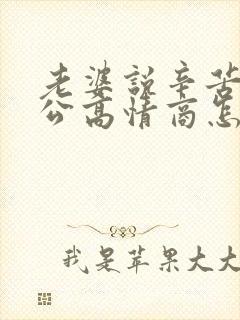 老婆说辛苦
公高情商怎
我是苹果大大